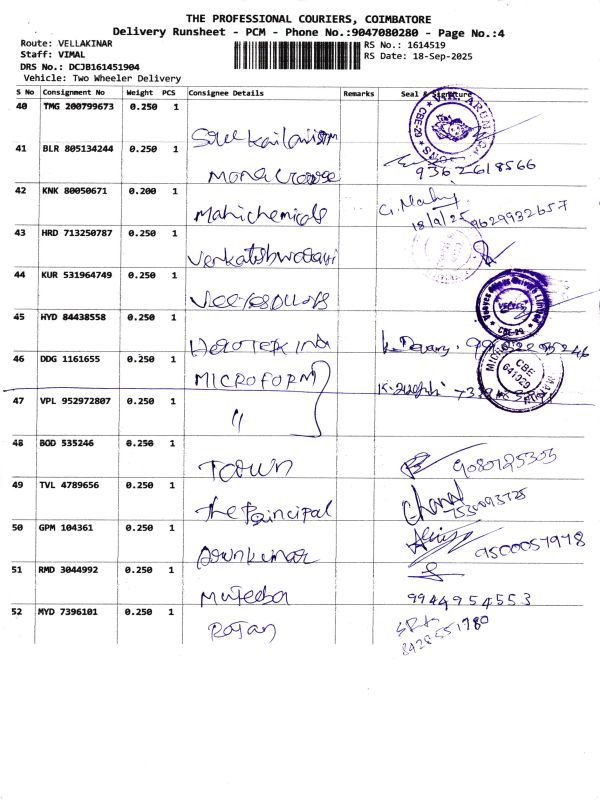 THE PROFESSIONAL COURIERS, COIMBATORE
Delivery Runsheet - PCM - Phone No.:9047080280 - Page No.:4
Route: VELLAKINAR
Staff: VIMAL
DRS No.: DCJB161451904
Vehicle: Two Wheeler Delivery
RS No.: 1614519
RS Date: 18-Sep-2025
S No Consignment No Weight PCS Consignee Details Remarks Seal & Signature
40 TMG 200799673 0.250 1
CBE-29
41 BLR 805134244 0.250 1
9362618566
42 KNK 80050671 0.200 1 Mahichemicals
18/9/25 9629932657
43 HRD 713250787 0.250 1
44 KUR 531964749 0.250 1
Private Limited
CBE-29
45 HYD 84438558 0.250 1
46 DDG 1161655 0.250 1 MICROFORM
CBE
641029
47 VPL 952972807 0.250 1 "
48 BOD 535246 0.250 1 Town 9080125303
49 TVL 4789656 0.250 1 The Principal
50 GPM 104361 0.250 1 Arunkumar 9500057978
51 RMD 3044992 0.250 1 Mujeeba
9944954553
52 MYD 7396101 0.250 1 Rajan
8428551780